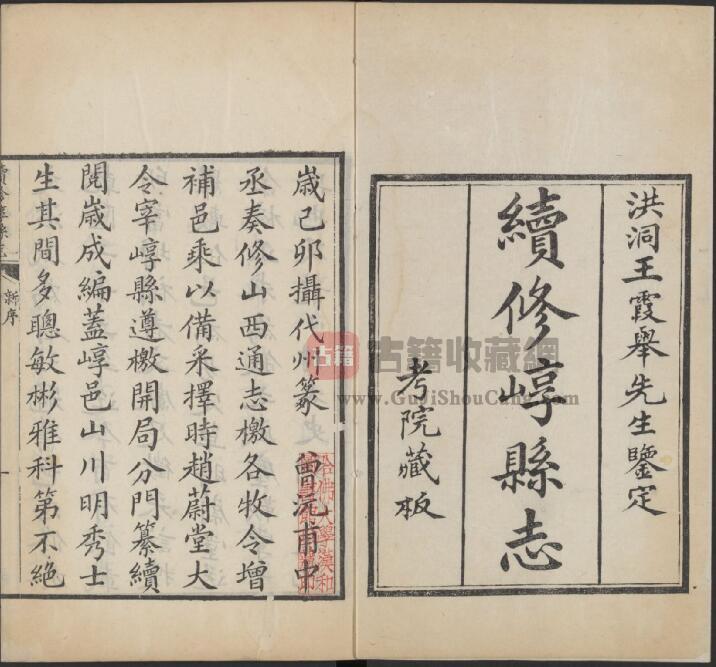 洪洞王霞舉先生鑒定
續修崞縣志
考院藏板
歲己卯攝代州篆　曾沅甫中
丞奏修山西通志檄各牧令增
補邑乘以備采擇時趙蔚堂大
令宰崞縣遵檄開局分門纂續
閱歲成編蓋崞邑山川明秀士
生其間多聰敏彬雅科第不絕
新序
一
古籍
古籍收藏網
www.GuJiShouCang.com